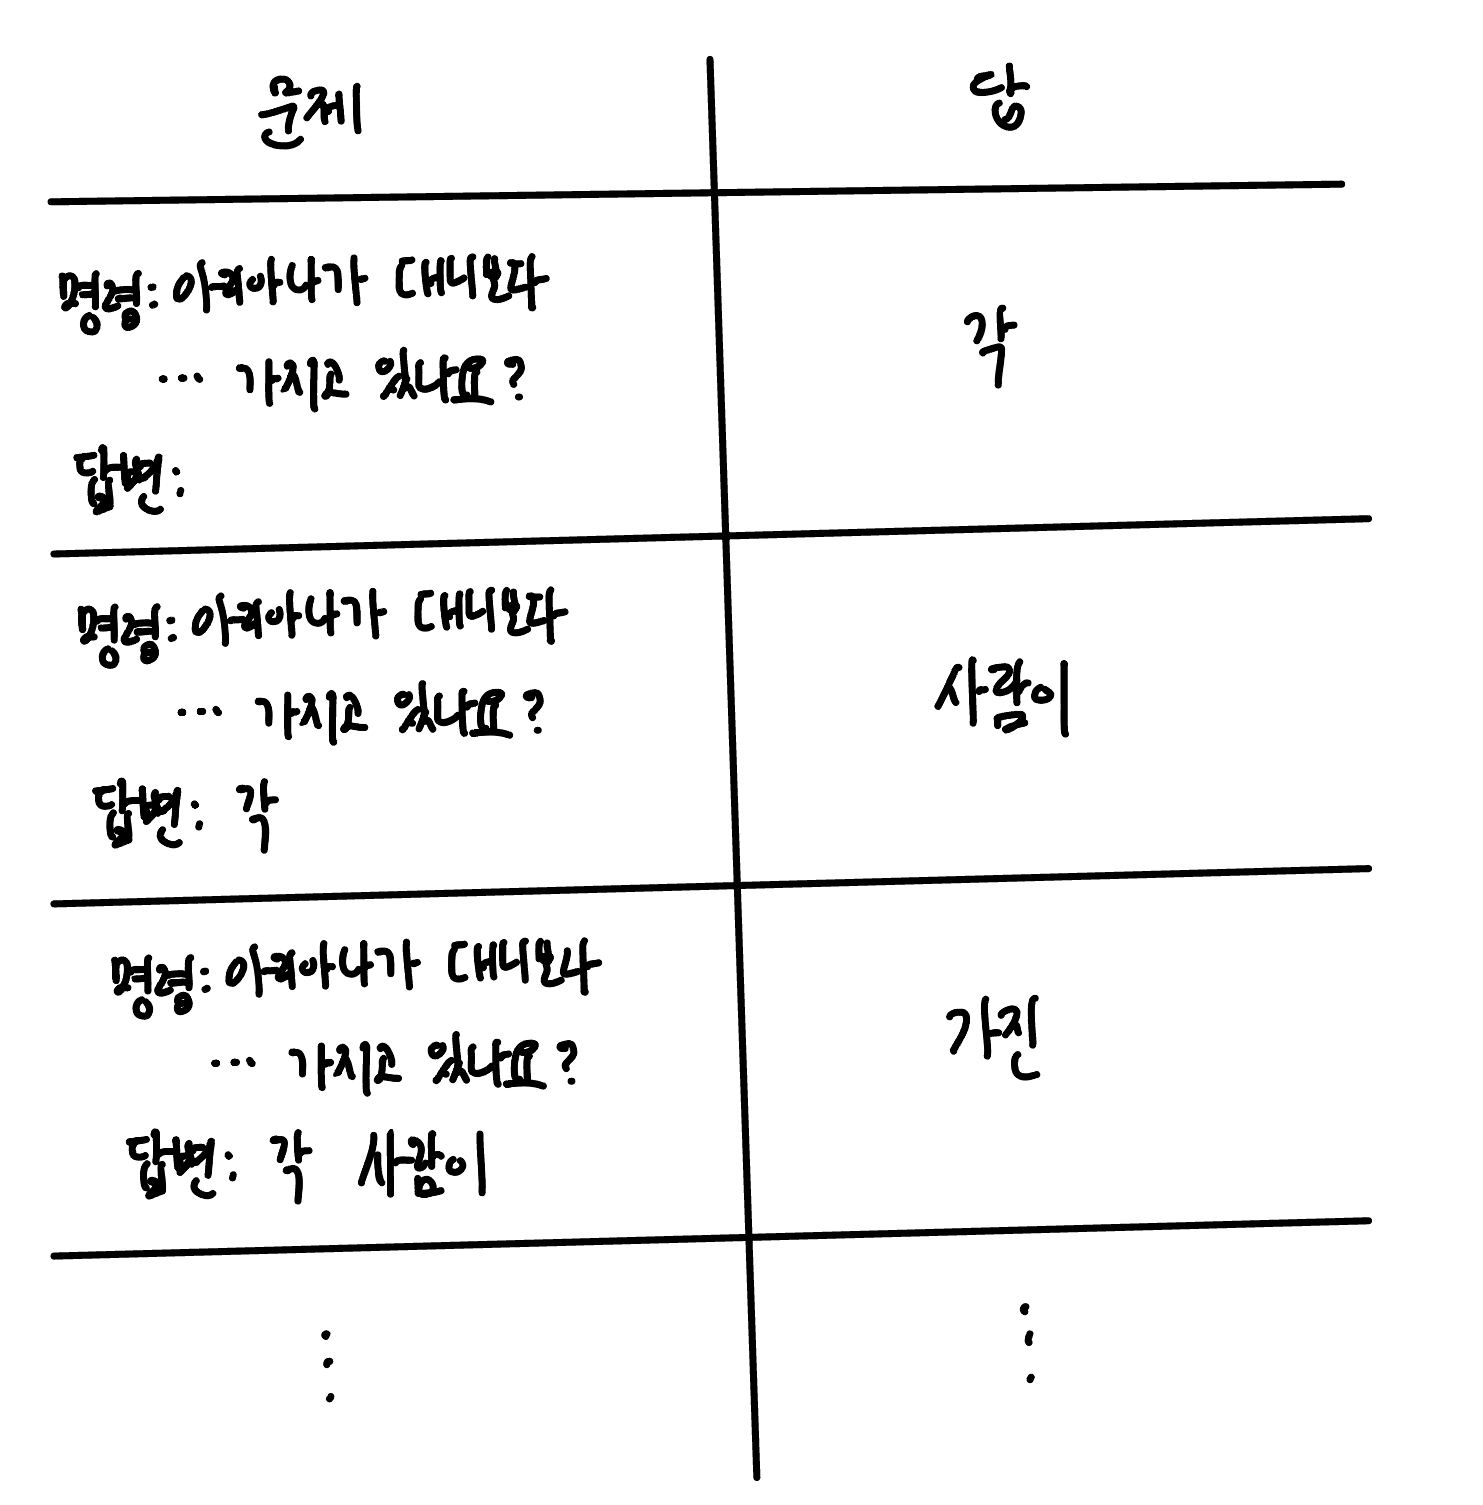 문제 답
명령: 아리아나가 대니보다
… 가지고 있나요?
답변:
각
명령: 아리아나가 대니보다
… 가지고 있나요?
답변: 각
사람이
명령: 아리아나가 대니보다
… 가지고 있나요?
답변: 각 사람이
가진
⋮ ⋮